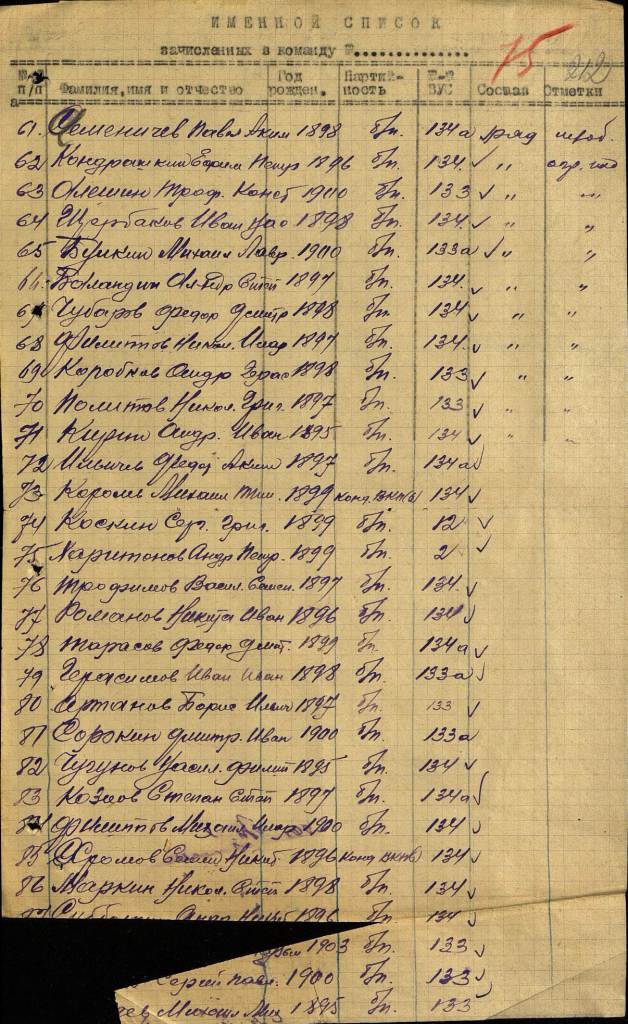 ИМЕННОЙ СПИСОК
зачисленных в команду №..............
75 212
№№ п/п Фамилия, имя и отчество Год рожден. Партийность №-№ ВУС Состав Отметки
61. Семеничев Павл Аким 1898 б/п. 134а ряд
62 Ефим Петр 1896 б/п. 134. ✓ "
63 Алешин Троф. Конст 1900 б/п. 133 ✓ " "
64 Щербаков Иван 1898 б/п. 134. ✓ " "
65 Булкин Михаил Лавр. 1900 б/п. 133а ✓ " "
66. Баландин Ал-др Степ 1897 б/п. 134. ✓ " "
67 Чубаров Федор Дмитр 1898 б/п. 134 ✓ " "
68 Филиппов Никол. 1897 б/п. 134. ✓ " "
69 Коробков Андр Герас 1898 б/п. 133 ✓ " "
70 Политов Никол. Григ. 1897 б/п. 133 ✓ " "
71 Кирин Андр. Иван 1895 б/п. 134 ✓ " "
72 Ильичев Федор Аким 1897 б/п. 134а ✓
73 Король Михаил Тим. 1899 канд. ВКП(б) 134 ✓
74 Коскин Сер. Григ. 1899 б/п. 12 ✓
75 Харитонов Андр Петр. 1899 б/п. 2 ✓
76 Трофимов Васил. Семен. 1897 б/п. 134. ✓
77 Романов Никита Иван 1896 б/п. 134 ✓
78 Тарасов Федор Дмит. 1899 б/п 134а ✓
79 Герасимов Иван Иван 1898 б/п. 133а ✓
80 Артанов Борис Ильич 1897 б/п. 133 ✓
81 Сорокин Дмитр. Иван 1900 б/п. 133а
82 Чугунов Васил. Филип 1895 б/п. 134 ✓
83 Козлов Степан Степ 1897 б/п. 134а ✓
84 Филиппов Михаил 1900 б/п. 134 ✓
85 Хромов Никит 1896 канд ВКП(б) 134 ✓
86 Маркин Никол. Степ 1898 б/п. 134 ✓
1896 б/п. 134 ✓
1903 б/п. 133 ✓
Сергей Павл. 1900 б/п. 133 ✓
Михаил Мих 1895 б/п. 133